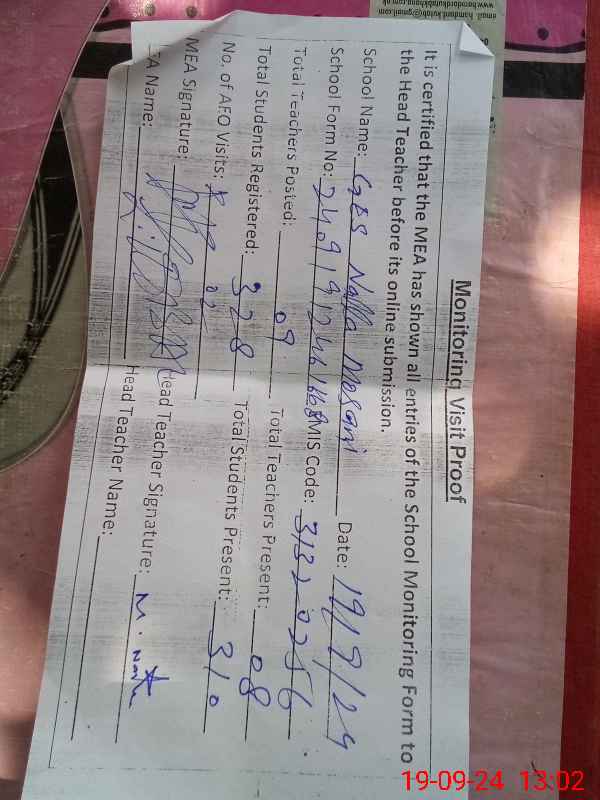 Monitoring Visit Proof
It is certified that the MEA has shown all entries of the School Monitoring Form to
the Head Teacher before its online submission.
School Name: GBS Nalla Mosani Date: 19/9/24
School Form No: EMIS Code: 31320256
Total Teachers Posted: 09 Total Teachers Present: 08
Total Students Registered: 328 Total Students Present: 310
No. of AFO Visits: 02
MEA Signature: Head Teacher Signature: M.
Name: Head Teacher Name:
19-09-24 13:02